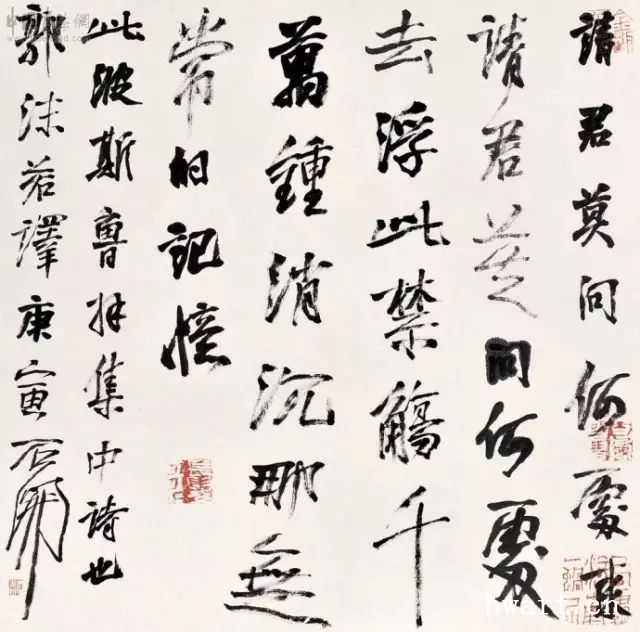 請君莫问何處来
請君莫問何處
去浮此禁觴千
萬鍾消沉那無
常的記憶
此波斯魯拜集中詩也
郭沫若譯庚寅石開
hwart.cn